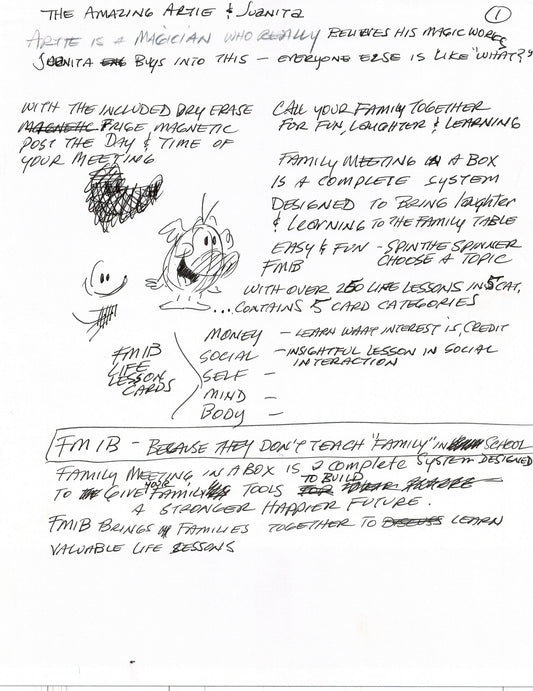 THE AMAZING ARTIE & JUANITA
1
ARTIE IS A MAGICIAN WHO REALLY BELIEVES HIS MAGIC WORKS
JUANITA BUYS INTO THIS - EVERYONE ELSE IS LIKE "WHAT?"
WITH THE INCLUDED DRY ERASE
MAGNETIC FRIGE MAGNETIC
POST THE DAY & TIME OF
YOUR MEETING
CALL YOUR FAMILY TOGETHER
FOR FUN, LAUGHTER & LEARNING
FAMILY MEETING IN A BOX
IS A COMPLETE SYSTEM
DESIGNED TO BRING laughter
& LEARNING TO THE FAMILY TABLE
EASY & FUN - SPIN THE SPINNER
FMIB CHOOSE A TOPIC
WITH OVER 250 LIFE LESSONS IN 5 CAT.
...CONTAINS 5 CARD CATEGORIES
FMIB
LIFE
LESSON
CARDS
MONEY - LEARN WHAT INTEREST IS, CREDIT
SOCIAL - INSIGHTFUL LESSON IN SOCIAL
INTERACTION
SELF -
MIND -
BODY -
FMIB - BECAUSE THEY DON'T TEACH "FAMILY" IN SCHOOL
FAMILY MEETING IN A BOX IS a complete SYSTEM DESIGNED
TO GIVE YOUR FAMILY TOOLS TO BUILD
A STRONGER HAPPIER FUTURE.
FMIB BRINGS FAMILIES TOGETHER TO DISCUSS LEARN
VALUABLE LIFE LESSONS